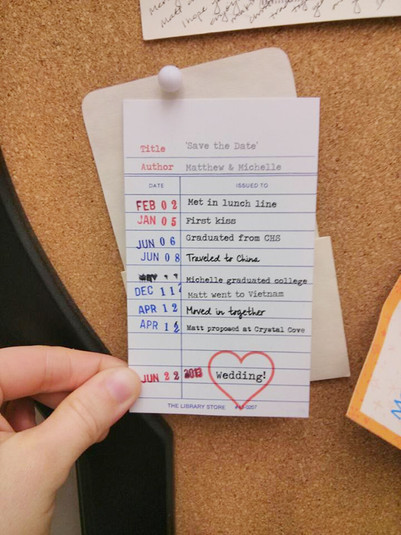 Title 'Save the Date'
Author Matthew & Michelle
DATE ISSUED TO
FEB 02 Met in lunch line
JAN 05 First kiss
JUN 06 Graduated from CHS
JUN 08 Traveled to China
Michelle graduated college
DEC 11 Matt went to Vietnam
APR 12 Moved in together
APR 12 Matt proposed at Crystal Cove
JUN 22 2013 Wedding!
THE LIBRARY STORE